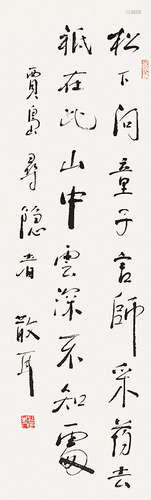 松下问童子言師采药去
祇在此山中雲深不知處
賈島尋隐者 散耳